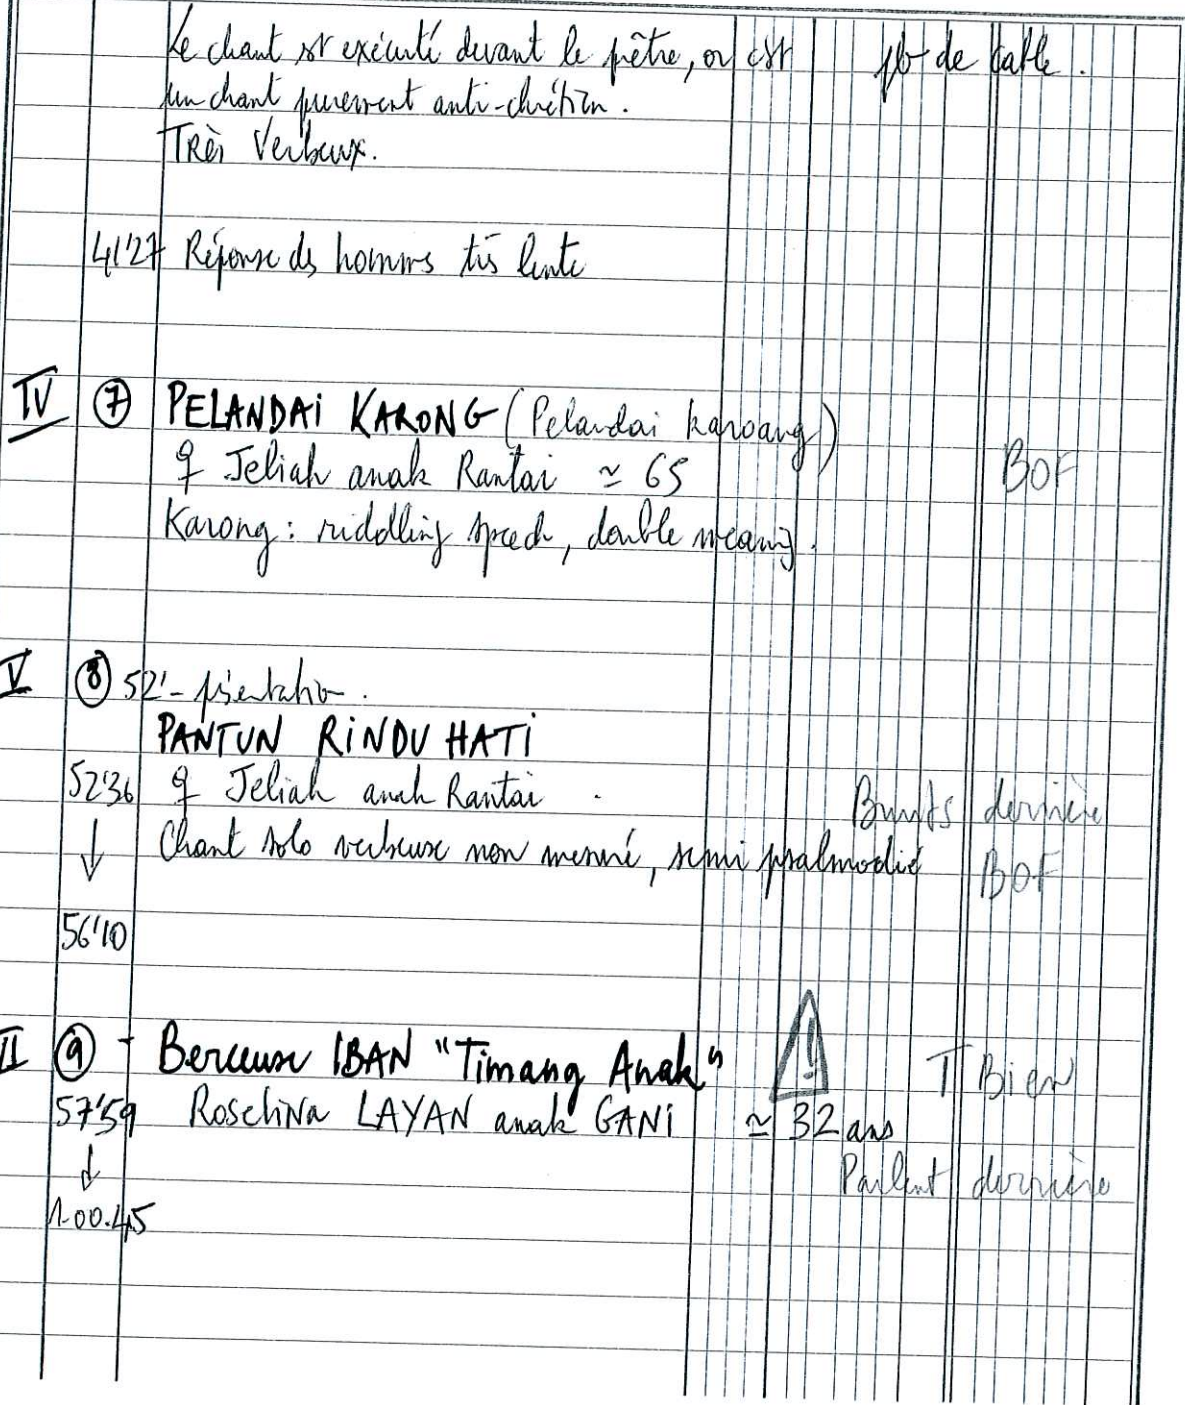 Le chant est exécuté devant le prêtre, or c'est pb de cable.
un chant purement anti-chrétien.
TRès Verbeux.
41'27 Réponse des hommes très lente
IV 7 PELANDAI KARONG (Pelandai karoang)
♀ Jeliah anak Rantai ≃ 65 BOF
Karong : riddling speech, double meaning.
V 8 52' - présentation.
PANTUN RINDU HATI
52'36 ♀ Jeliah anak Rantai. Bruits derrière
↓ Chant solo verbeux non mesuré, semi psalmodié BOF
56'10
II 9 - Berceuse IBAN "Timang Anak" ! T Bien
57'59 Roselina LAYAN anak GANI ≃ 32 ans
↓ Parlent derrière
1.00.45